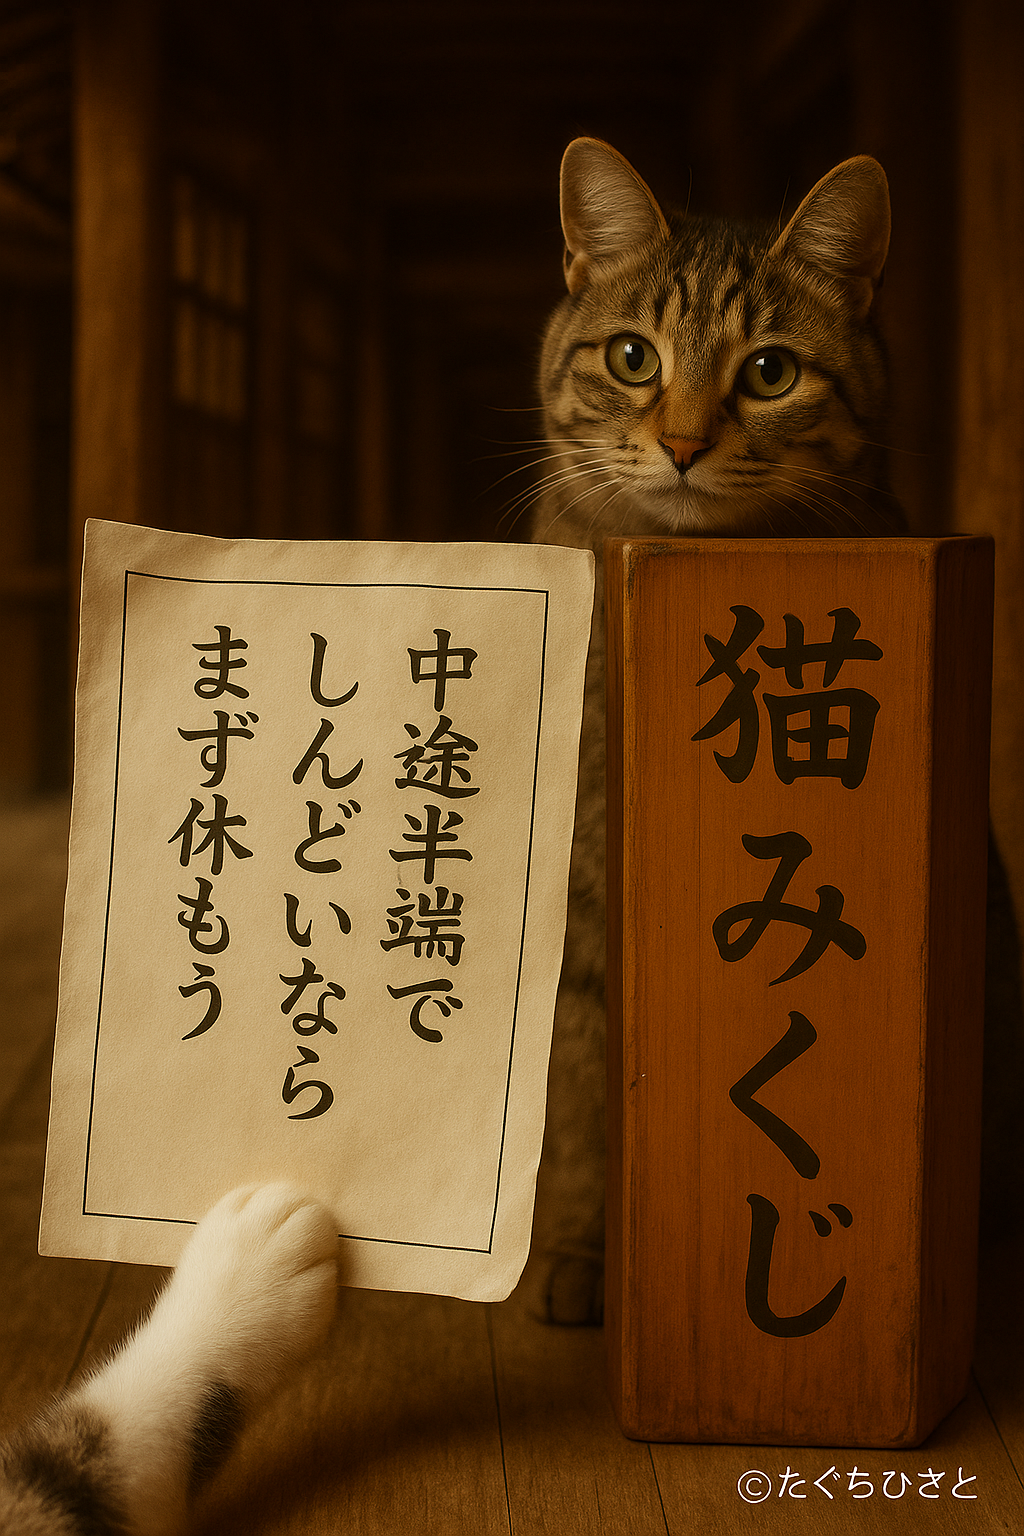 中途半端で
しんどいなら
まず休もう
猫みくじ
©たぐちひさと